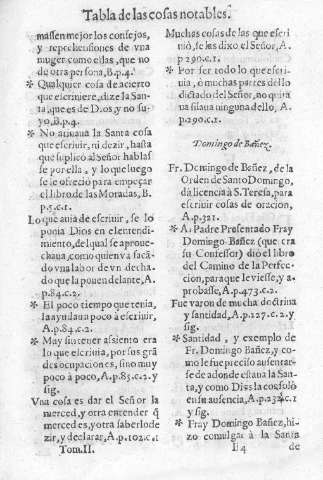 Tabla de las cosas notables.
massen mejor los consejos,
y reprehensiones de vna
muger como ellas, que no
de otra persona, B.p.4.
* Qualquier cosa de acierto
que escriuiere, dize la San-
ta, que es de Dios, y no su-
yo, B.p.4.
* No atinaua la Santa cosa
que escriuir, ni dezir, hasta
que suplicò al Señor hablas
se por ella, y lo que luego
se le ofreciò para empeçar
el libro de las Moradas, B.
p.5.c.1.
Lo que auia de escriuir, se lo
ponia Dios en el entendi-
miento, del qual se aproue-
chaua, como quien va sacã-
do vna labor de vn decha-
do que la ponen delante, A.
p.84.c.2.
* El poco tiempo que tenia,
la ayudaua poco à escriuir,
A.p.84.c.2.
* Muy sin tener assiento era
lo que escriuia, por sus grã
des ocupaciones, sino muy
poco à poco, A.p.85.c.2. y
sig.
Vna cosa es dar el Señor la
merced, y otra entender q̃
merced es, y otra saberlo de
zir, y declarar, A.p.102.c.1
Tom.II.
Muchas cosas de las que escri
uiò, se las dixo el Señor, A.
p 290.c.1.
* Por ser todo lo que escri-
uia, ò muchas partes dello
dictado del Señor, no quita
ua silaua ninguna dello, A.
p.290.c.1.
Domingo de Bañez,
Fr. Domingo de Bañez, de la
Orden de Santo Domingo,
dà licencia à S. Teresa, para
escriuir cosas de oracion,
A.p.321.
* A. Padre Presentado Fray
Domingo Bañez (que era
su Confessor) diò el libro
del Camino de la Perfec-
cion, para que le viesse, y a-
probasse, A.p.473.c.2.
Fue varon de mucha doctrina
y santidad, A.p.127.c.2. y
sig.
* Santidad, y exemplo de
Fr. Domingo Bañez, y co-
mo le fue preciso ausentar-
se de adonde estaua la San-
ta, y como Dios la consolò
en su ausencia, A.p.232.c.1
y sig.
* Fray Domingo Bañez, hi-
zo comulgar à la Santa
Ii 4 de